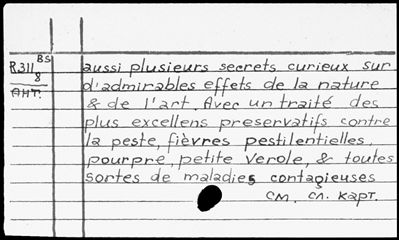 R311 BS
8
АНТ.
aussi plusieurs secrets curieux sur
d'admirables effets de la nature
& de l'art. Avec un traité des
plus excellens preservatifs contre
la peste, fièvres pestilentielles,
pourpre, petite verole, & toutes
sortes de maladies contagieuses
см. сл. карт.